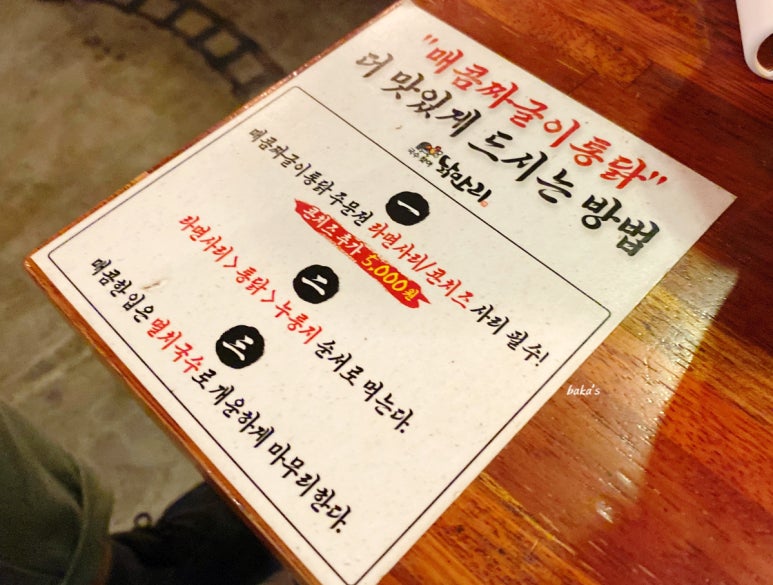 "매콤짜글이통닭"
더 맛있게 드시는 방법
국수항아
낢만리
一
매콤짜글이통닭 주문전 라면사리/콘치즈 사리 필수!
콘치즈 추가 5,000원
二
라면사리 > 통닭 > 누룽지 순서로 먹는다.
三
매콤한 입은 멸치국수로 개운하게 마무리한다.
baka's